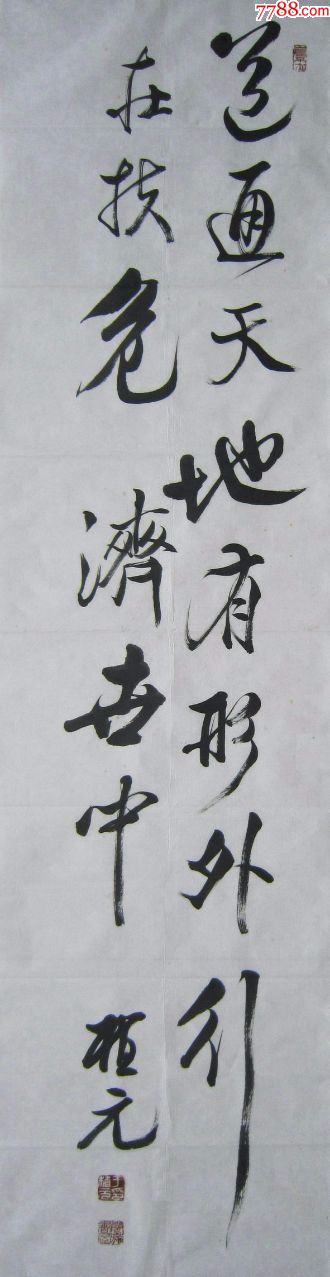 7788.com
道通天地有形外行
在扶危濟世中
植元